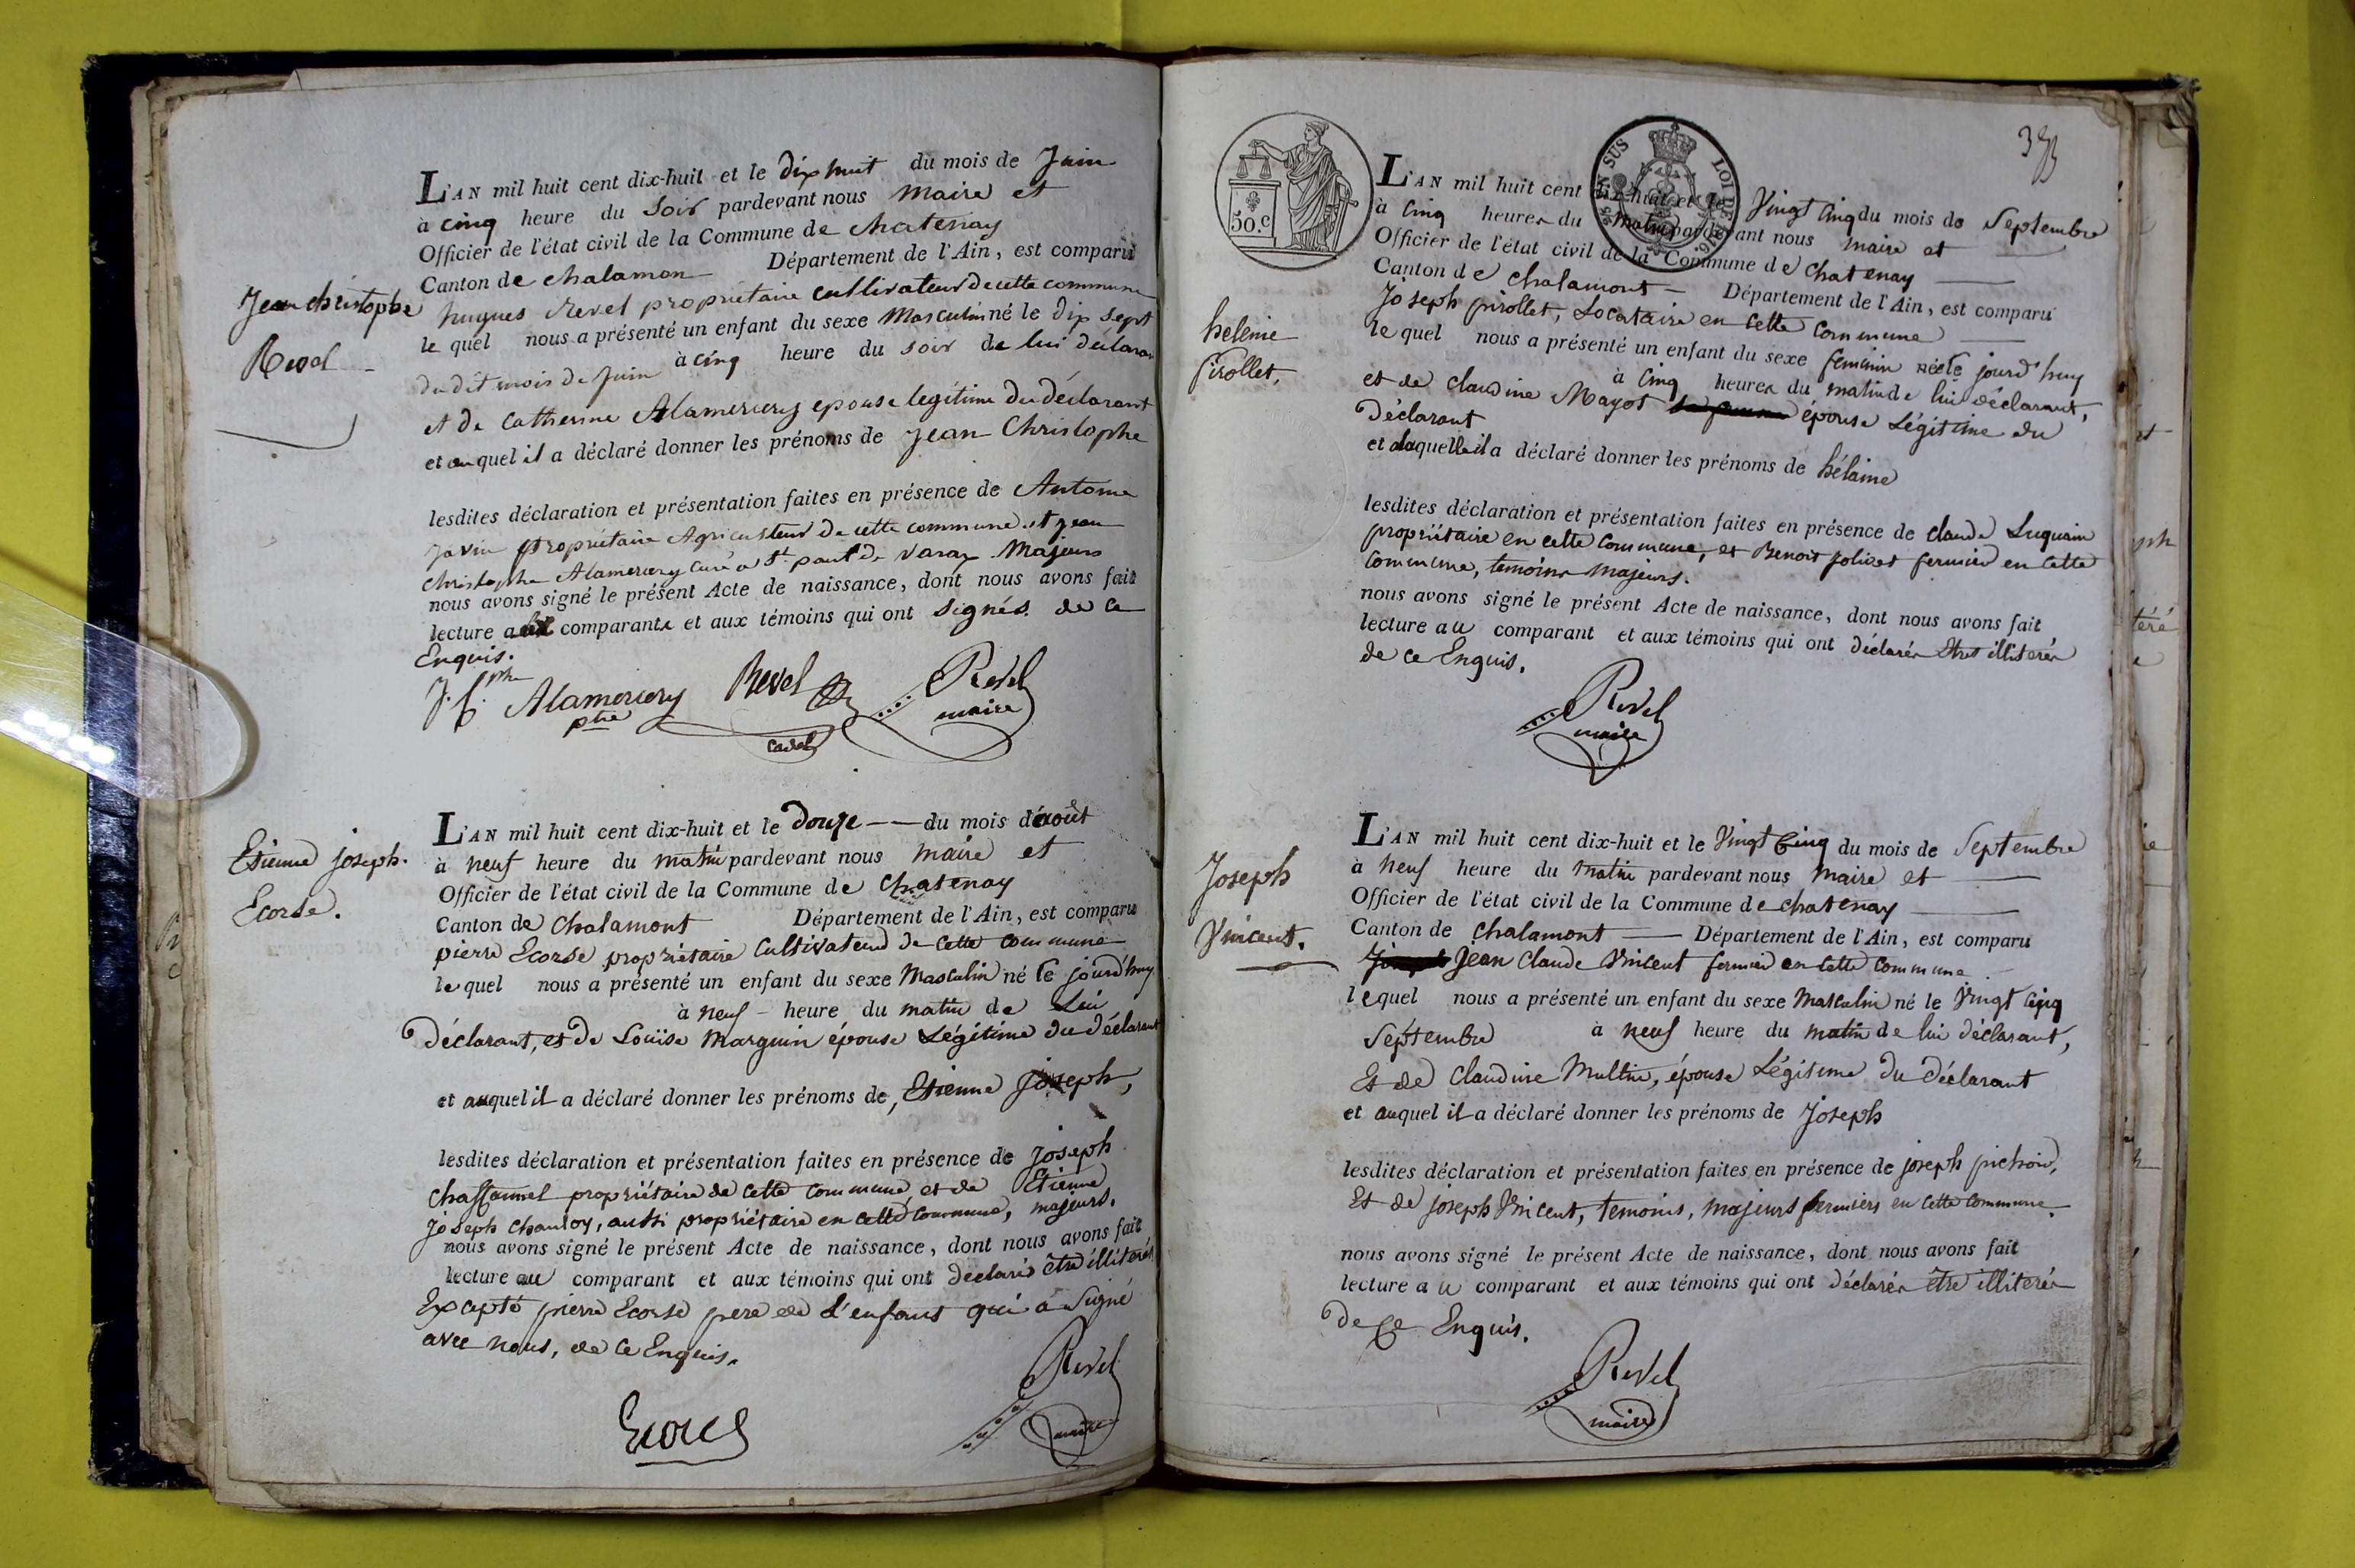 L'AN mil huit cent dix-huit et le dix huit du mois de Juin
à cinq heure du Soir pardevant nous maire et
Officier de l'état civil de la Commune de chatenay
Canton de chalamon Département de l'Ain, est comparu
hugues Revel propriétaire cultivateur de cette commune
le quel nous a présenté un enfant du sexe Masculin né le dix sept
du dit mois de Juin à cinq heure du soir de lui déclarant
et de Catherine Alamercery epouse legitime du déclarant
et auquel il a déclaré donner les prénoms de Jean Christophe
lesdites déclaration et présentation faites en présence de Antoine
Javin propriétaire Agriculteur de cette commune et jean
christophe Alamercery curé a St paul de varax Majeurs
nous avons signé le présent Acte de naissance, dont nous avons fait
lecture aux comparants et aux témoins qui ont signés de ce
Enquis.
Jean christophe
Revel
J. C.ph Alamercery Revel Revel
ptre maire
L'AN mil huit cent dix-huit et le douze du mois d'août
à neuf heure du matin pardevant nous maire et
Officier de l'état civil de la Commune de Chatenay
Canton de Chalamont Département de l'Ain, est comparu
pierre Ecorse propriétaire Cultivateur de cette commune
le quel nous a présenté un enfant du sexe Masculin né le jourd'huy
à neuf heure du matin de Lui
déclarant, et de Louïse Marguin épouse Légitime du déclarant
et auquel il a déclaré donner les prénoms de, Etienne joseph,
lesdites déclaration et présentation faites en présence de joseph
Chassannel propriétaire de cette commune, et de Etienne
Joseph chanroy, aussi propriétaire en cette commune, majeurs.
nous avons signé le présent Acte de naissance, dont nous avons fait
lecture au comparant et aux témoins qui ont declarés être illiterés
Excepté pierre Ecorse pere de l'enfant qui a Signé
avec nous, de ce Enquis.
Etienne joseph.
Ecorse.
Ecorce Revel
maire
50.c
EN SUS LOI DE 1816.
L'AN mil huit cent dix-huit et le Vingt Cinq du mois de Septembre
à Cinq heures du matin pardevant nous maire et
Officier de l'état civil de la Commune de Chatenay
Canton de Chalamont Département de l'Ain, est comparu
Joseph pirollet, Locataire en cette commune
le quel nous a présenté un enfant du sexe feminin née le jourd'huy
à Cinq heures du matin de lui déclarant,
et de claudine Mayot épouse Légitime du
Déclarant
et alaquelle il a déclaré donner les prénoms de hélaine
lesdites déclaration et présentation faites en présence de claude Luquain
propriétaire en cette commune, et Benoit polivet fermier en cette
commune, temoins majeurs.
nous avons signé le présent Acte de naissance, dont nous avons fait
lecture au comparant et aux témoins qui ont déclarés être illiterés
de ce Enquis.
helenie
Pirollet.
Revel
maire
L'AN mil huit cent dix-huit et le Vingt Cinq du mois de Septembre
à Neuf heure du Matin pardevant nous Maire et
Officier de l'état civil de la Commune de chatenay
Canton de Chalamont Département de l'Ain, est comparu
Jean Claude Vincent fermier en cette commune
lequel nous a présenté un enfant du sexe Masculin né le Vingt Cinq
Septembre à neuf heure du matin de lui déclarant,
Et de Claudine Multin, épouse Légitime du déclarant
et auquel il a déclaré donner les prénoms de Joseph
lesdites déclaration et présentation faites en présence de joseph pichon,
Et de joseph Vincent, temoins, majeurs fermiers en cette commune.
nous avons signé le présent Acte de naissance, dont nous avons fait
lecture au comparant et aux témoins qui ont déclarés être illiterés
De Ce Enquis.
Joseph
Vincent.
Revel
maire